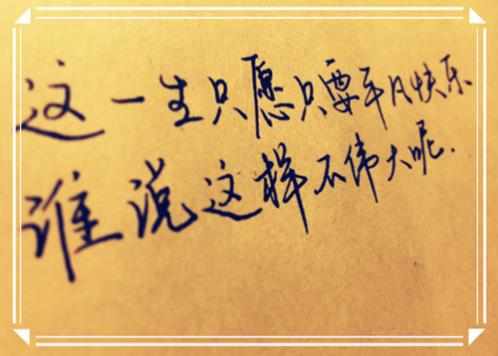 这一生只愿只要平凡快乐
谁说这样不伟大呢.